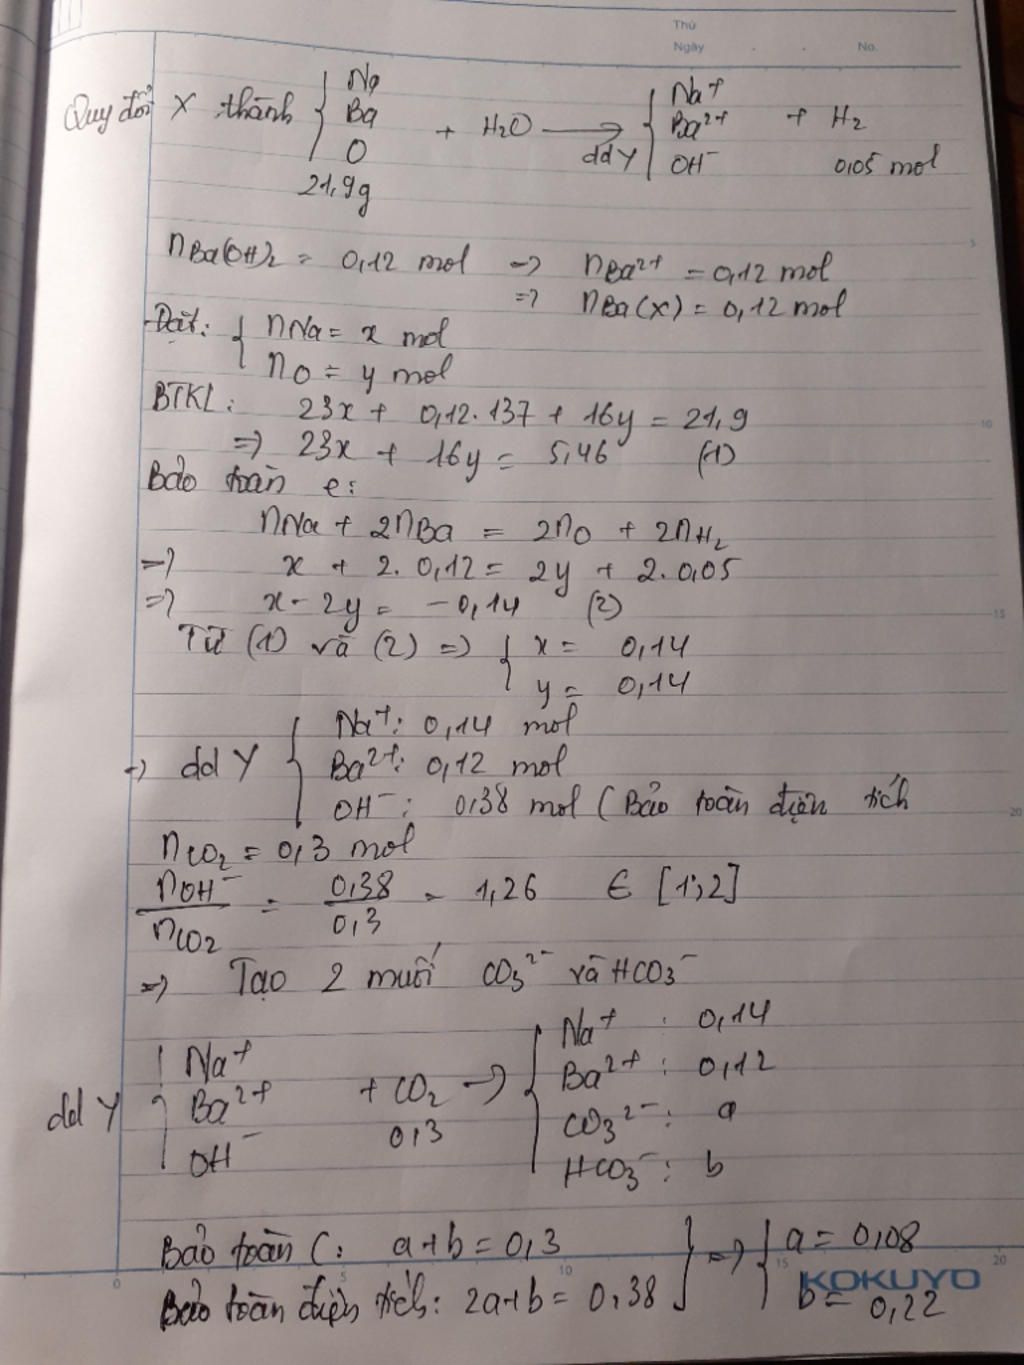 Thứ
Ngày . . No.
Quy đổi X thành { Na Ba O + H2O → ddY { Na+ Ba2+ OH- + H2
21,9g 0,05 mol
nBa(OH)2 = 0,12 mol => nBa2+ = 0,12 mol
=> nBa(X) = 0,12 mol
Đặt: { nNa = x mol
nO = y mol
BTKL: 23x + 0,12.137 + 16y = 21,9
=> 23x + 16y = 5,46 (1)
Bảo toàn e:
nNa + 2nBa = 2nO + 2nH2
=> x + 2.0,12 = 2y + 2.0,05
=> x - 2y = -0,14 (2)
Từ (1) và (2) => { x = 0,14
y = 0,14
=> dd Y { Na+: 0,14 mol
Ba2+: 0,12 mol
OH-: 0,38 mol (Bảo toàn điện tích
nCO2 = 0,3 mol
nOH-/nCO2 = 0,38/0,3 = 1,26 ∈ [1;2]
=> Tạo 2 muối CO3 2- và HCO3-
dd Y { Na+ Ba2+ OH- + CO2 → { Na+ : 0,14
0,3
Ba2+ : 0,12
CO3 2- : a
HCO3- : b
Bảo toàn C: a+b = 0,3 } => { a = 0,08
Bảo toàn điện tích: 2a+b = 0,38 b = 0,22
KOKUYO
0 5 10 15 20
5
10
15
20